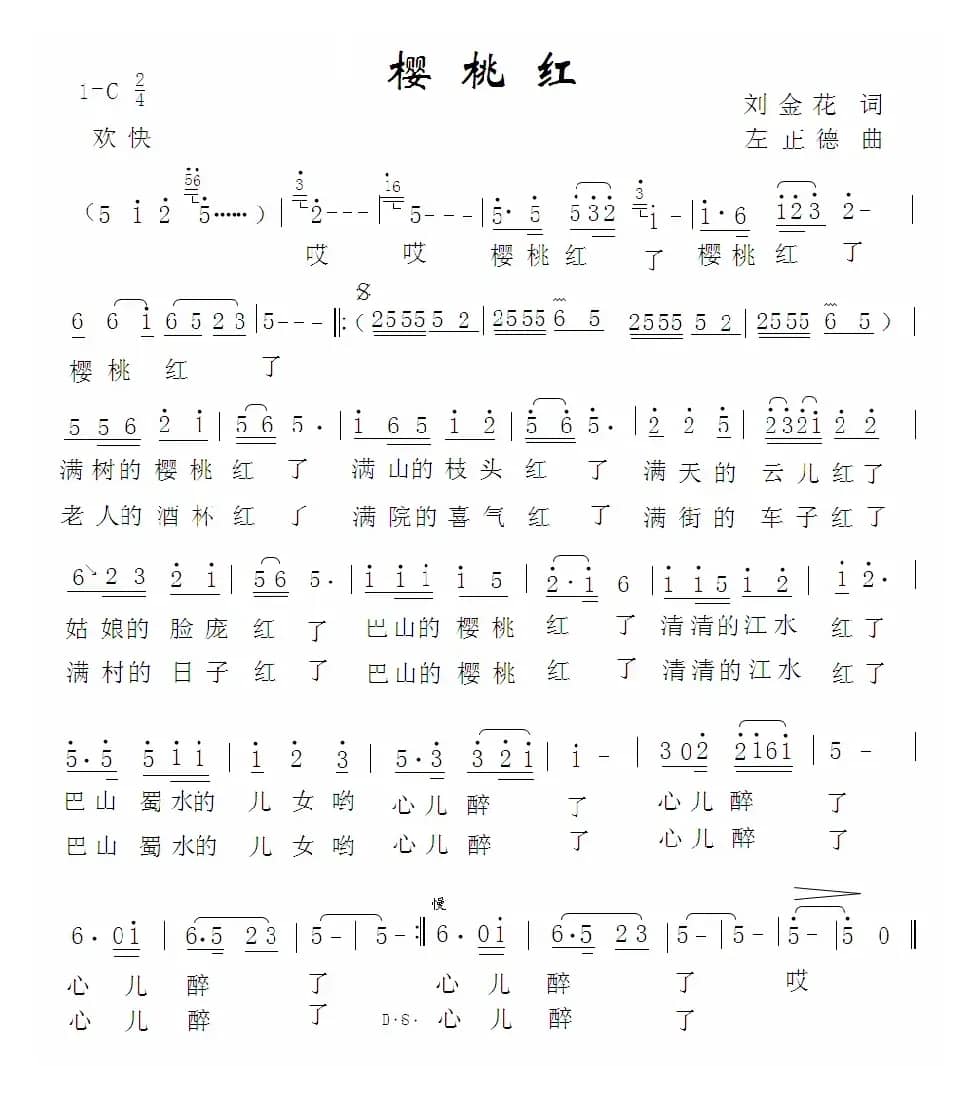 樱桃红
1-C 2/4
刘金花 词
欢快
左正德 曲
(5 1̇ 2̇ 5̇……) | 2̇--- | 5--- | 5̇· 5̇ 5̇3̇2̇ 1̇- | 1̇·6 1̇2̇3̇ 2̇- |
哎 哎 樱桃红 了 樱桃红 了
6 6 1̇ 6523 | 5--- ‖: (2555 5 2 | 2555 6 5 2555 5 2 | 2555 6 5) |
樱桃 红 了
5 56 2̇ 1̇ | 56 5· | 1̇ 65 1̇ 2̇ | 5̇ 6̇ 5̇· | 2̇ 2̇ 5̇ | 2̇3̇2̇1̇ 2̇ 2̇ |
满树的樱桃红 了 满山的枝头红 了 满天的 云儿红了
老人的酒杯红 了 满院的喜气红 了 满街的 车子红了
6 23 2̇ 1̇ | 56 5· | 1̇ 1̇1̇ 1̇ 5 | 2̇·1̇ 6 | 1̇ 1̇5 1̇ 2̇ | 1̇ 2̇· |
姑娘的脸庞红 了 巴山的樱桃 红 了 清清的江水 红了
满村的日子红 了 巴山的樱桃 红 了 清清的江水 红了
5̇·5̇ 5̇ 1̇1̇ | 1̇ 2̇ 3̇ | 5·3̇ 3̇ 2̇1̇ | 1̇ - | 302̇ 2̇1̇61̇ | 5 - |
巴山 蜀水的 儿女哟 心儿醉 了 心儿醉 了
巴山 蜀水的 儿女哟 心儿醉 了 心儿醉 了
慢
6· 01̇ | 6·5 23 | 5- | 5- :‖ 6· 01̇ | 6·5 23 | 5- | 5- | 5̇- | 5̇ 0 ‖
心 儿 醉 了 心 儿 醉 了 哎
心 儿 醉 了 D·S· 心 儿 醉 了